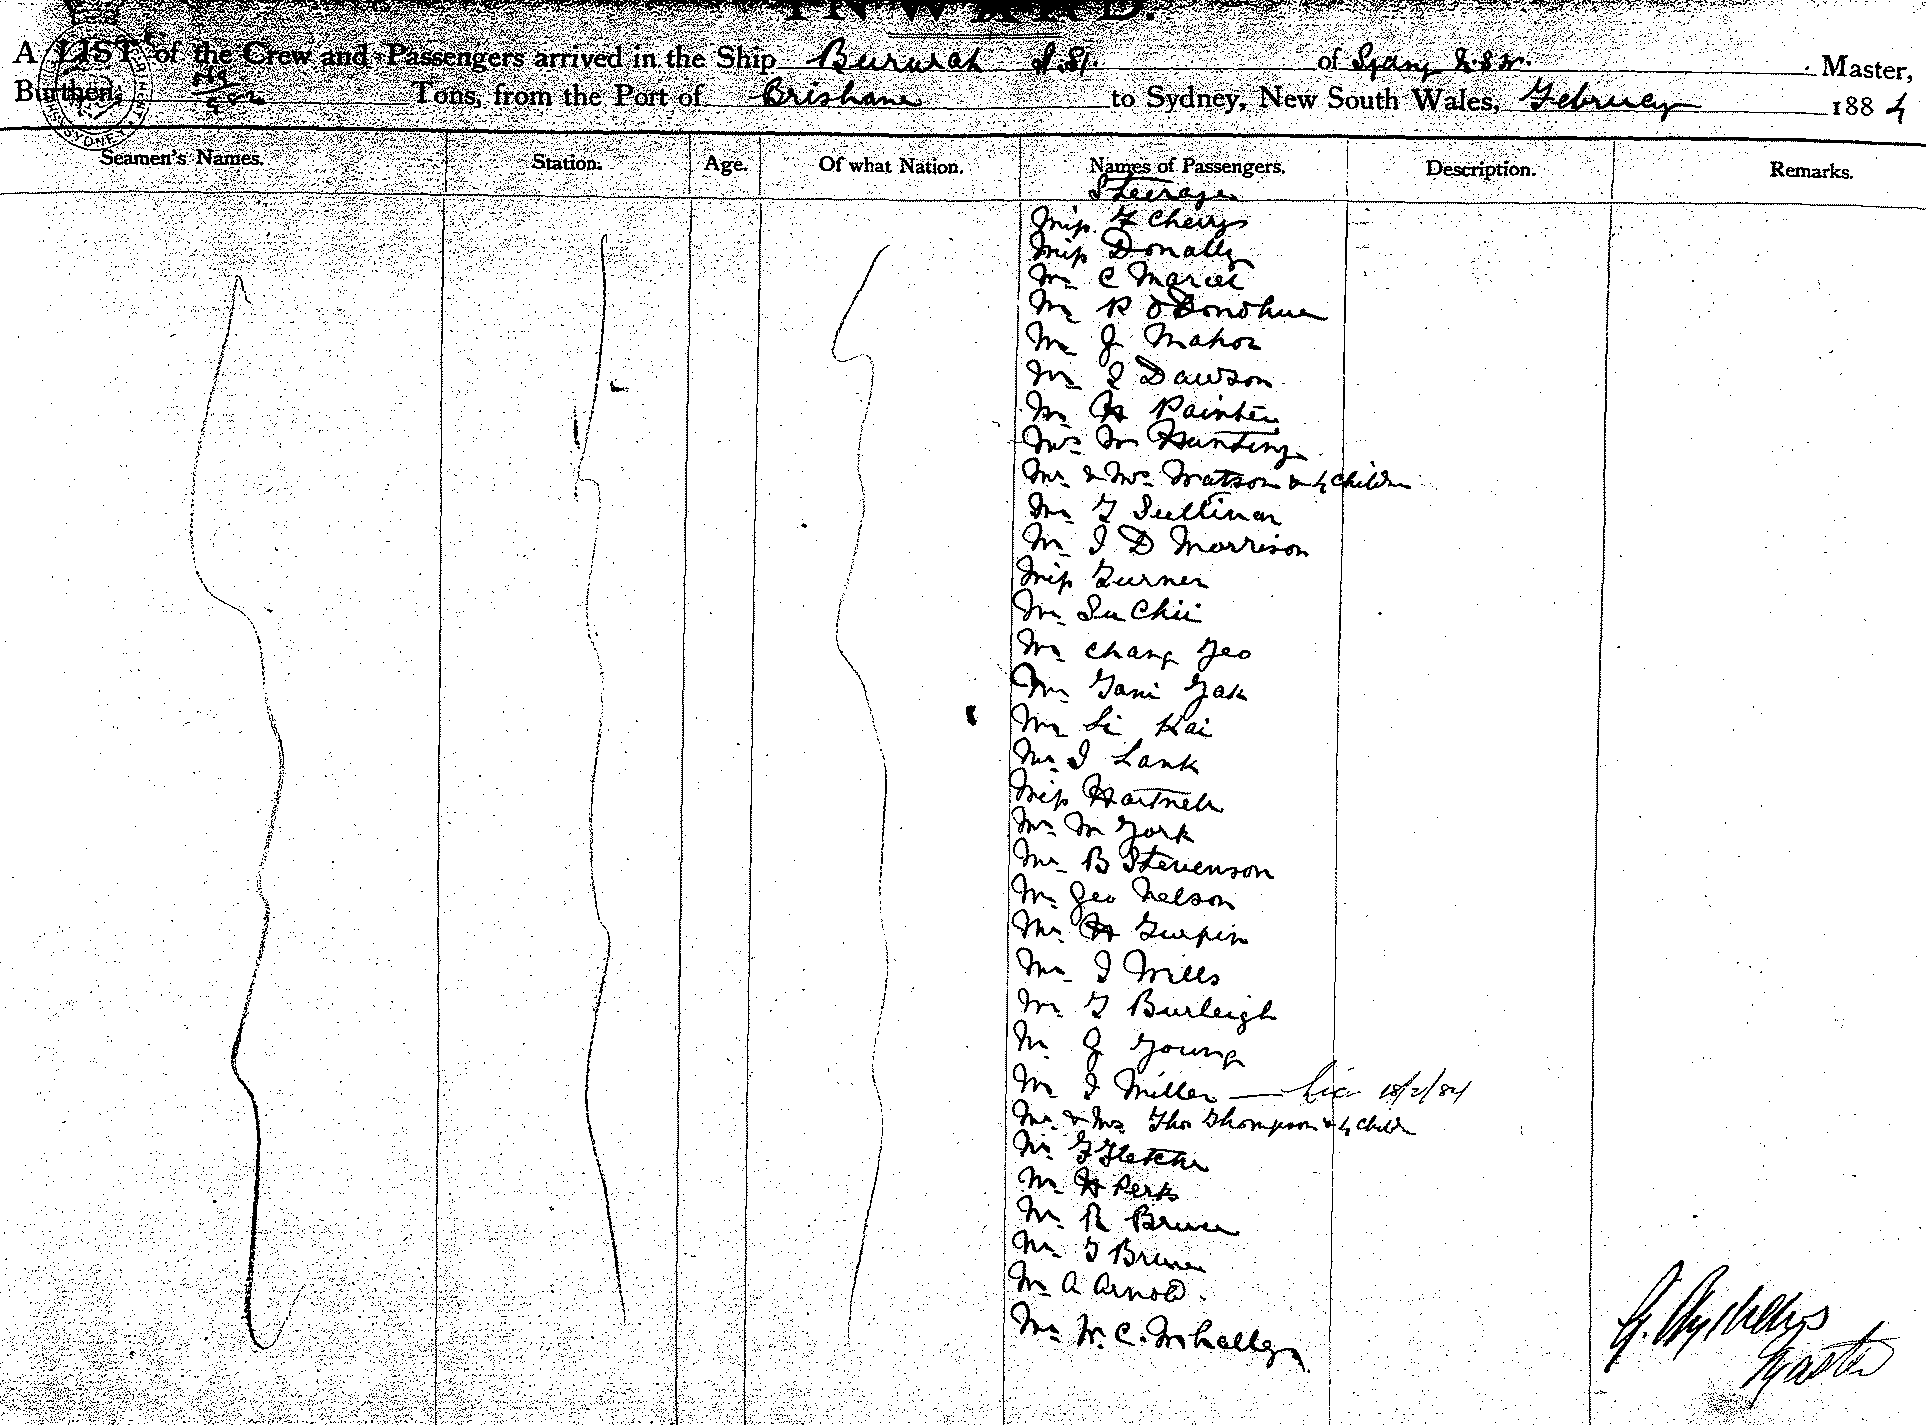 INWARD.
A LIST of the Crew and Passengers arrived in the Ship Burwah S.S. of Sydney N.S.W. Master,
Burthen, Tons, from the Port of Brisbane to Sydney, New South Wales, February 1884
Seamen's Names. Station. Age. Of what Nation. Names of Passengers. Description. Remarks.
Steerage
Miss F Cherry
Miss Donally
Mr C
Mr P O'Donohue
Mr J Mahon
Mr S Dawson
Mr H Painter
Mrs M Hunting
Mr & Mrs Watson & 4 Children
Mr T Sullivan
Mr J D Morrison
Miss Turner
Mr Su Chii
Mr Chang Yeo
Mr Yak
Mr Li Kai
Mr J Lank
Miss Hartnell
Mr M York
Mr B Stevenson
Mr Geo Nelson
Mr H Turpin
Mr J Mills
Mr T Burleigh
Mr J Young
Mr J Miller 18/2/84
Mr & Mrs Thos Thompson & 4 Childn
Mr F Fletcher
Mr H Perks
Mr R Bruce
Mr T Bruce
Mr A Arnold.
Mr W. C. Whalley
Master